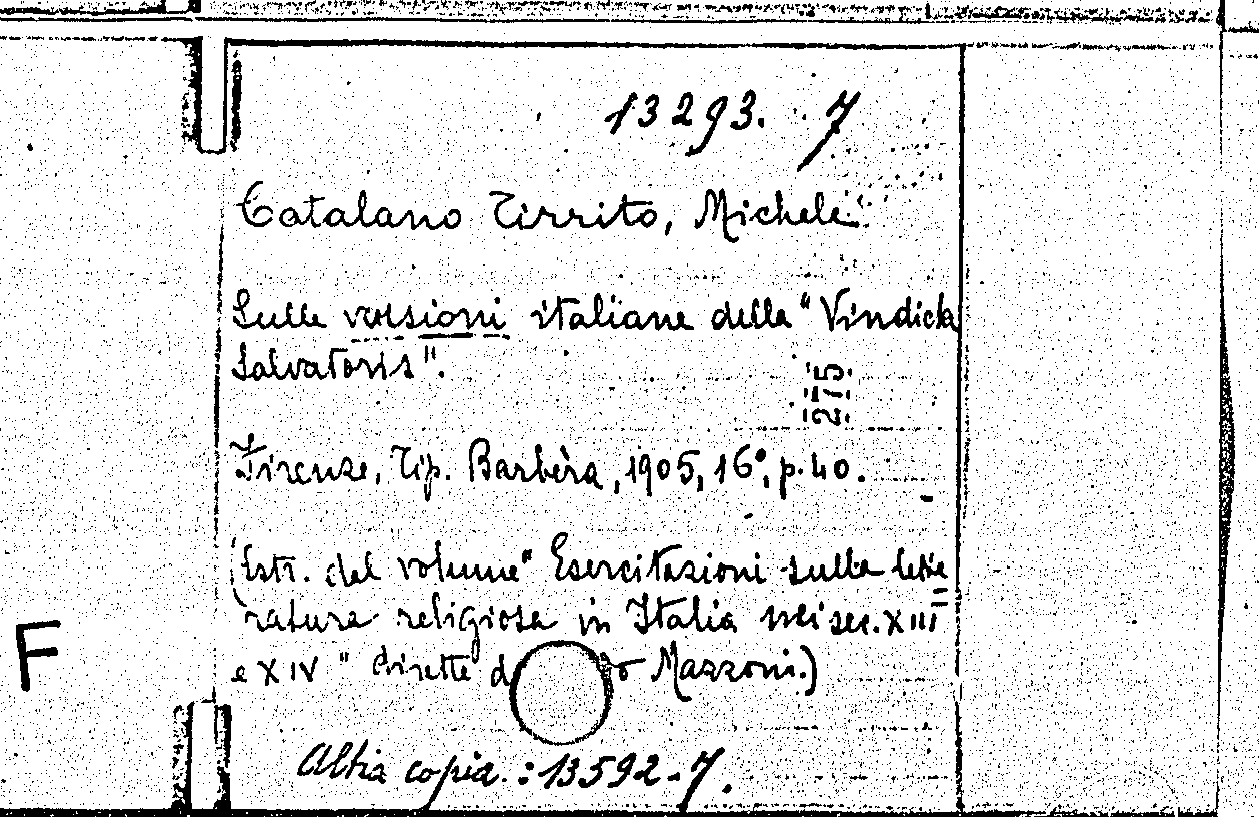 13293. 7
Catalano Tirrito, Michele.
Sulle versioni italiane della "Vindicta
Salvatoris".
275
Firenze, Tip. Barbèra, 1905, 16°, p. 40.
(Estr. del volume "Esercitazioni sulla lette=
ratura religiosa in Italia nei sec. XIII
e XIV" dirette d o Mazzoni.)
F
Altra copia.: 13592-7.